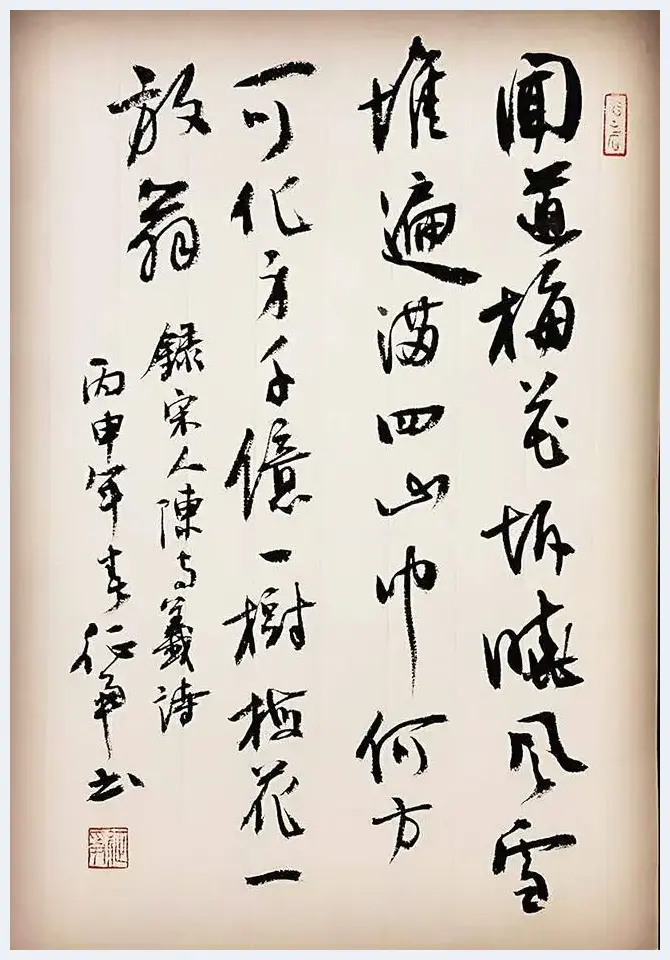 聞道梅花坼曉風雪
堆遍满四山中何方
可化身千億一樹梅花一
放翁
錄宋人陳与義詩
丙申年春征书